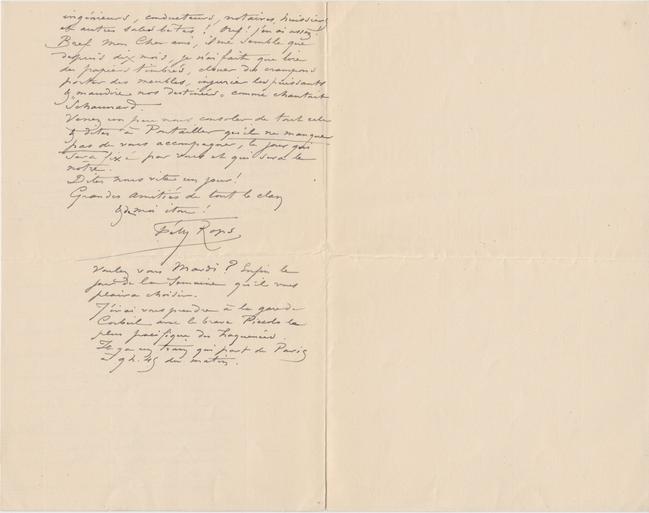 ingénieurs, conducteurs, notaires, huissiers
et autres sales bêtes ! Ouf ! j'en ai assez
Bref Mon Cher ami, il me semble que
depuis dix mois, je n'ai fait que lire
des papiers timbrés, clouer des crampons
porter des meubles, injurier les puissants
& maudire nos destinées, comme chantait
Schaunard.
Venez un peu nous consoler de tout cela
& dites à Pontailler qu'il ne manque
pas de vous accompagner, le jour qui
sera fixé par vous et qui sera le
nôtre.
Dites nous vite un jour !
Grandes amitiés de tout le clan
& de moi itou !
Fély Rops
Voulez vous Mardi ? Enfin le
jour de la Semaine qu'il vous
plaira choisir.
J'irai vous prendre à la gare de
Corbeil avec le brave la
plus pacifique des
Il y a un train qui part de Paris
à 9 h. 45 du matin.